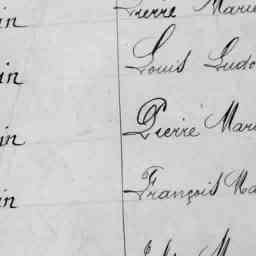 in Pierre Marie
in Louis Ludo
in Pierre Mar
in François Ma